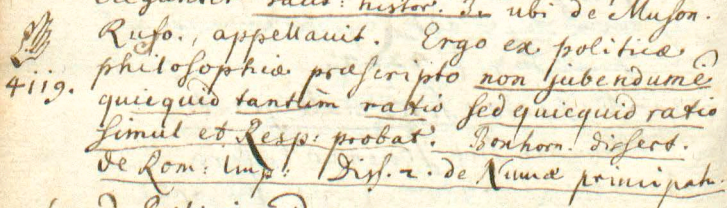 Tacit: histor. 3. ubi de Muson.
Rufo., appellavit. Ergo ex politicæ
philosophiæ præscripto non jubendum ē
4119.
quicquid tantum ratio sed quicquid ratio
simul et Resp: probat. Boxhorn. dissert.
de Rom: Imp: Diss. 2. de Numæ principatu.